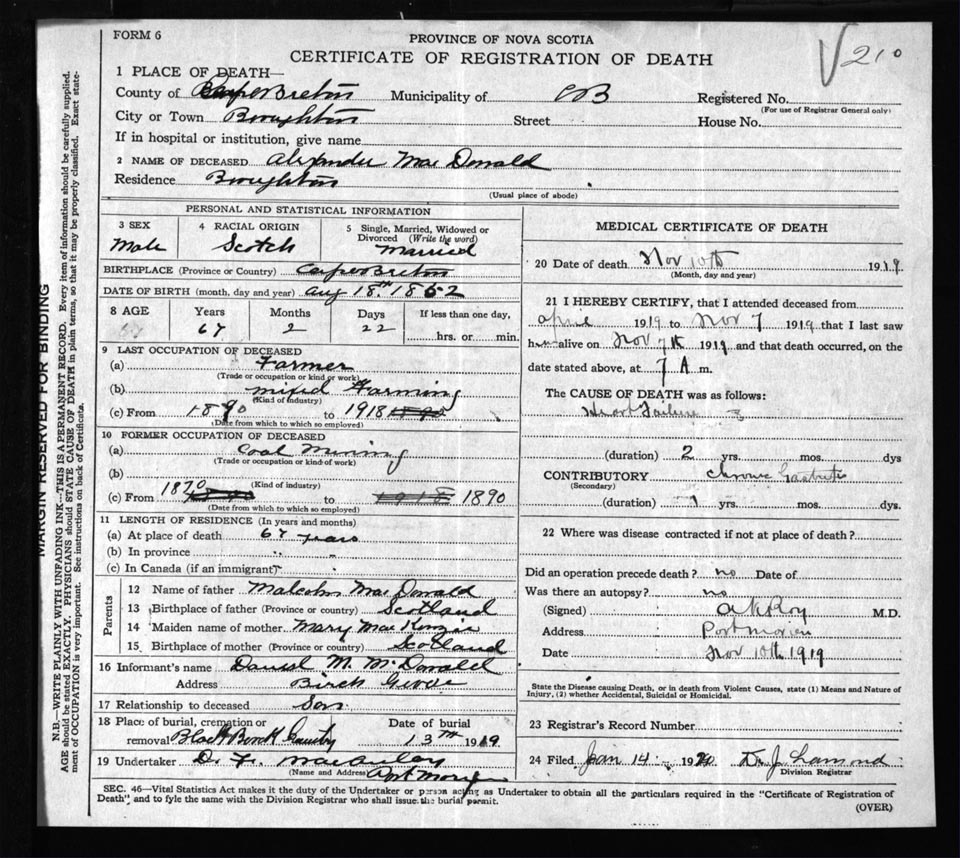 FORM 6
PROVINCE OF NOVA SCOTIA
CERTIFICATE OF REGISTRATION OF DEATH
V 210
1 PLACE OF DEATH—
County of Cape Breton Municipality of CB Registered No.
(For use of Registrar General only)
City or Town Broughton Street House No.
If in hospital or institution, give name
2 NAME OF DECEASED Alexander Mac Donald
Residence Broughton
(Usual place of abode)
PERSONAL AND STATISTICAL INFORMATION
3 SEX 4 RACIAL ORIGIN 5 Single, Married, Widowed or Divorced (Write the word)
Male Scotch Married
BIRTHPLACE (Province or Country) Cape Breton
DATE OF BIRTH (month, day and year) Aug 18th 1852
8 AGE Years Months Days If less than one day,
67 2 22 hrs. or min.
9 LAST OCCUPATION OF DECEASED
(a) Farmer
(Trade or occupation or kind or work)
(b) mixed Farming
(Kind of industry)
(c) From 1890 to 1918
(Date from which to which so employed)
10 FORMER OCCUPATION OF DECEASED
(a) Coal Mining
(Trade or occupation or kind of work)
(b)
(Kind of industry)
(c) From 1870 to 1890
(Date from which to which so employed)
11 LENGTH OF RESIDENCE (In years and months)
(a) At place of death 67 years
(b) In province " "
(c) In Canada (if an immigrant) "
Parents
12 Name of father Malcolm Mac Donald
13 Birthplace of father (Province or country) Scotland
14 Maiden name of mother Mary Mac Kenzie
15 Birthplace of mother (Province or country) Scotland
16 Informant's name Daniel M. McDonald
Address Birch Grove
17 Relationship to deceased Son
18 Place of burial, cremation or removal Black Date of burial
13TH 1919
19 Undertaker D. F. MacAulay
(Name and Address) Port Morien
MEDICAL CERTIFICATE OF DEATH
20 Date of death Nov 10th 1919
(Month, day and year)
21 I HEREBY CERTIFY, that I attended deceased from
April 1919 to Nov 7 1919 that I last saw
h alive on Nov 7th 1919 and that death occurred, on the
date stated above, at 7 A m.
The CAUSE OF DEATH was as follows:
Heart Failure
(duration) 2 yrs. mos. dys
CONTRIBUTORY Chronic Gastritis
(Secondary)
(duration) yrs. mos. dys.
22 Where was disease contracted if not at place of death?
Did an operation precede death? no Date of
Was there an autopsy? no
(Signed) A K Roy M.D.
Address Port Morien
Date Nov 10th 1919
State the Disease causing Death, or in death from Violent Causes, state (1) Means and Nature of
Injury, (2) whether Accidental, Suicidal or Homicidal.
23 Registrar's Record Number
24 Filed Jan 14 1920 D. J. Lamond
Division Registrar
SEC. 46—Vital Statistics Act makes it the duty of the Undertaker or person acting as Undertaker to obtain all the particulars required in the "Certificate of Registration of
Death" and to fyle the same with the Division Registrar who shall issue the burial permit.
(OVER)
MARGIN RESERVED FOR BINDING
N.B.—WRITE PLAINLY WITH UNFADING INK—THIS IS A PERMANENT RECORD. Every item of information should be carefully supplied.
AGE should be stated EXACTLY. PHYSICIANS should STATE CAUSE OF DEATH in plain terms, so that it may be properly classified. Exact state-
ment of OCCUPATION is very important. See instructions on back of Certificate.